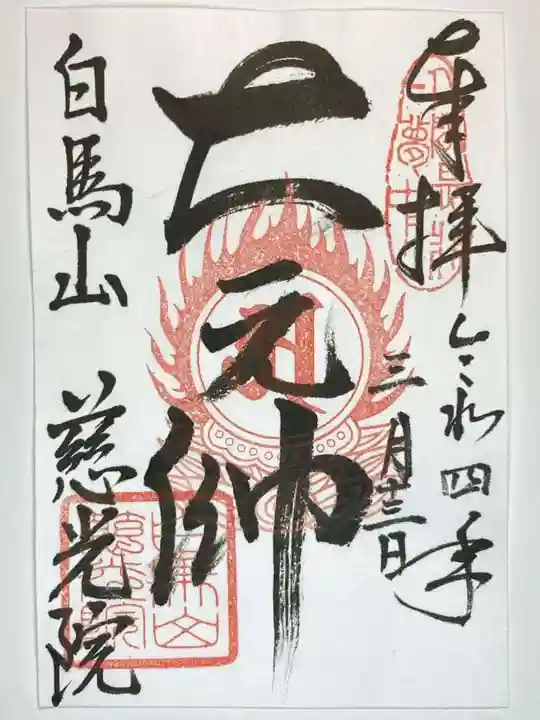 奉拝
令和四年
三月十三日
大元帥
白馬山
慈光院